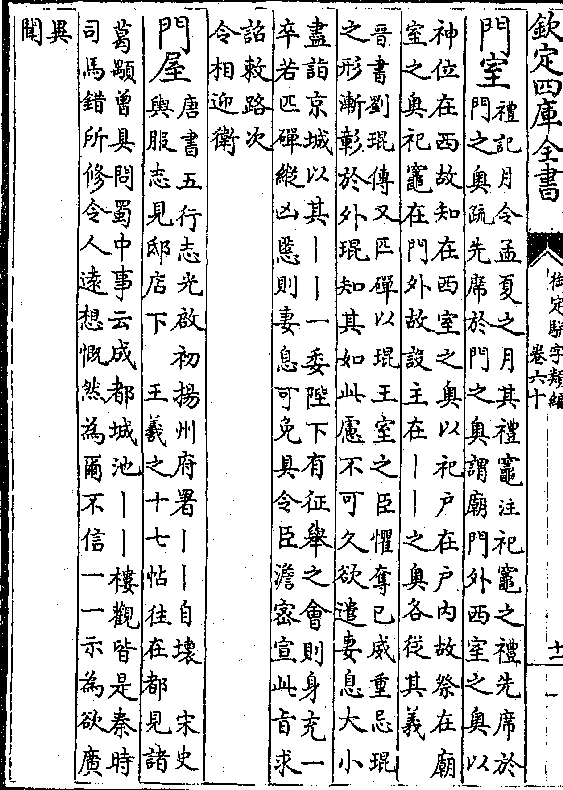 欽定四庫全書
御定駢字類編
卷六十
十一
門室
禮記月令孟夏之月其禮竈注祀竈之禮先席於
門之奥疏先席於門之奥謂廟門外西室之奥以
神位在西故知在西室之奥以祀户在户内故祭在廟
室之奥祀竈在門外故設主在丨丨之奥各從其義
晉書劉琨傳又匹磾以琨王室之臣懼奪已威重忌琨
之形漸彰於外琨知其如此慮不可久欲遣妻息大小
盡詣京城以其丨丨一委陛下有征舉之會則身充一
卒若匹磾縱凶慝則妻息可免具令臣澹密宣此旨求
詔敕路次
令相迎衛
門屋
唐書五行志光啟初揚州府署丨丨自壞 宋史
輿服志見邸店下 王羲之十七帖往在都見諸
葛顒曾具問蜀中事云成都城池丨丨樓觀皆是秦時
司馬錯所修令人遠想慨然為爾不信一一示為欲廣
異
聞